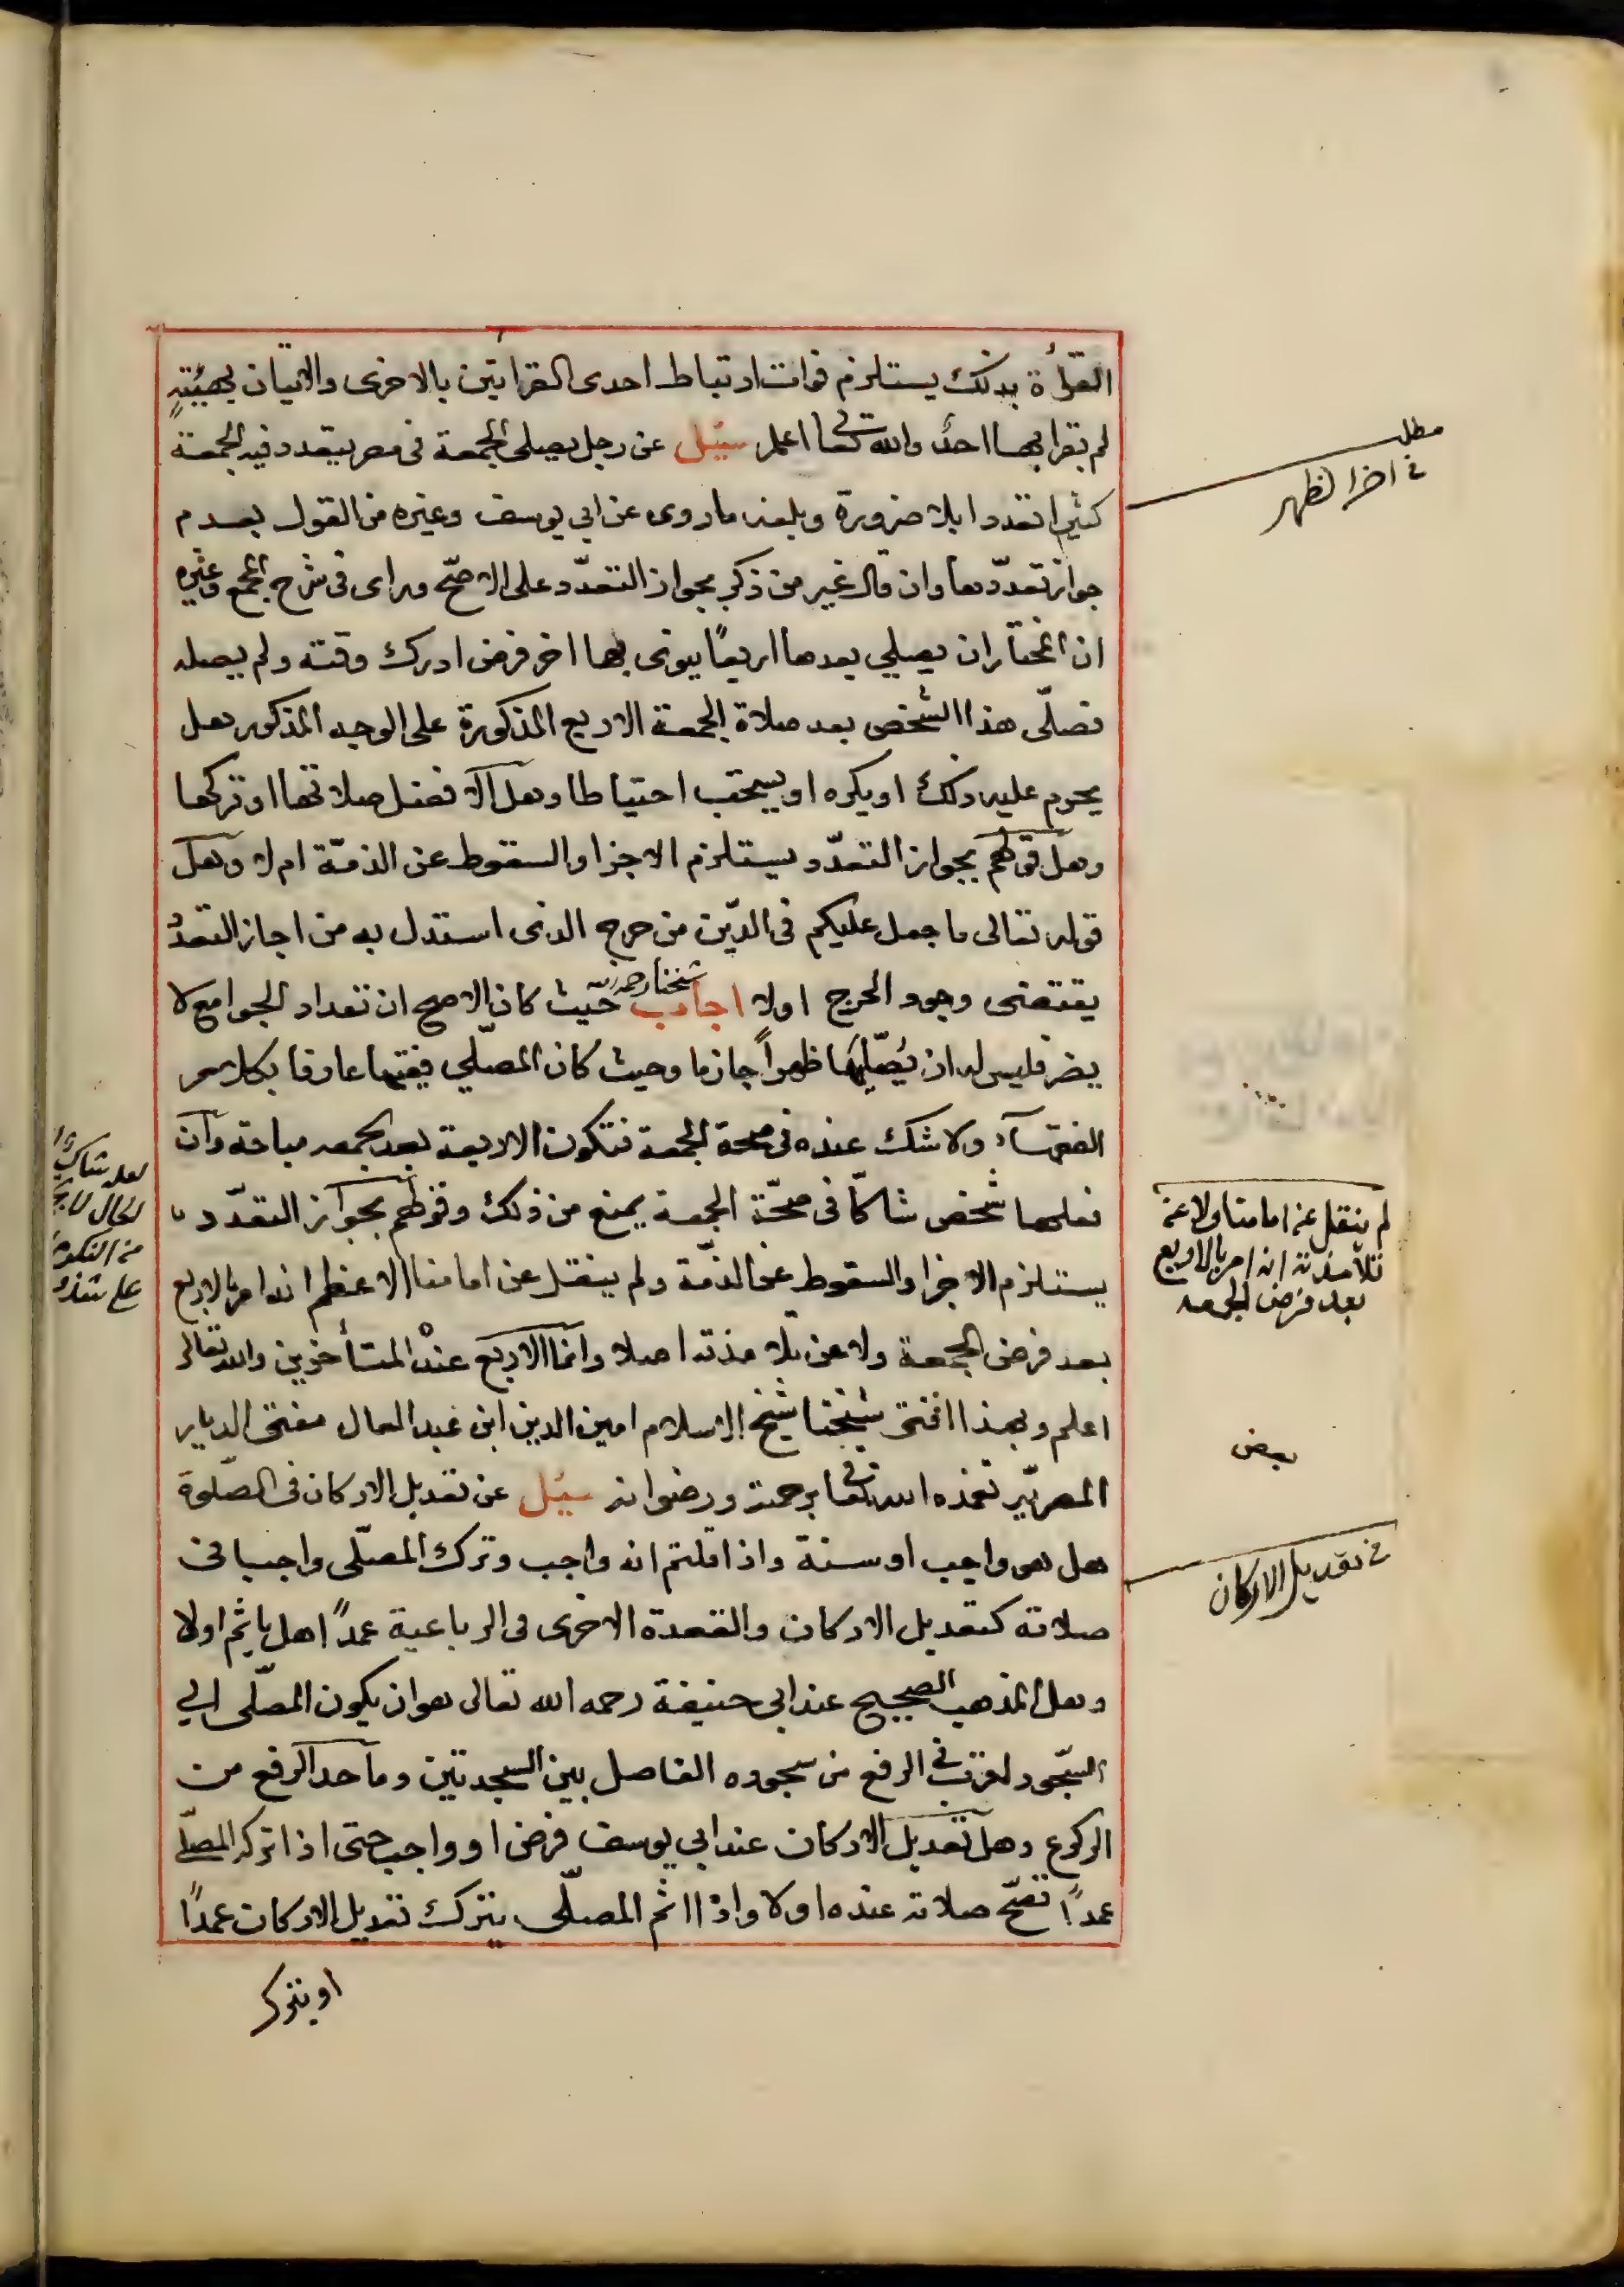 القرأة بذلك يستلزم فوات ارتباط احدى القرايتين بالاخرى والاتيان بهيئةٍ
لم يقرا بها احدٌ والله تعا اعلم سئيل عن رجل يصلى الجمعة فى مصر يتعدد فيه الجمعة
كثيرا تعددا بلا ضرورة وبلغه ما روى عن ابي يوسف وغيره من القول بعدم
جواز تعدّدها وان قال غير من ذكر بجواز التعدّد على الاصحّ وراى فى شرح المجمع وغيره
ان المختار ان يصلي بعدها اربعًا ينوى بها اخر فرض ادرك وقته ولم يصله
فصلّى هذا الشخص بعد صلاة الجمعة الاربع المذكورة على الوجه المذكور هل
يحرم عليه ذلك او يكره او يستحب احتياطا وهل الافضل صلاتها او تركها
وهل قولهم بجواز التعدّد يستلزم الاجزا والسقوط عن الذمّة ام لا وهل
قوله تعالى ما جعل عليكم فى الدّين من حرج الذى استدل به من اجاز التعدُّد
يقتضى وجود الحرج اولا اجاب شيخنا رحمه الله حيث كان الاصح ان تعداد الجوامع لا
يضر فليس له ان يُصَلّيها ظهراً جازما وحيث كان المصلّي فقيها عارفا بكلام
الفقهآء ولا شك عنده فى صحة الجمعة فتكون الاربعة بعد الجمعه مباحة وان
فعلها شخص شاكّا فى صحّة الجمعة يمنع من ذلك وقولهم بجواز التعدّد
يستلزم الاجزا والسقوط عن الذمّة ولم ينقل عن امامنا الاعظم انه امر بالاربع
بعد فرض الجمعة ولا عن تلامذته اصلا وانما الاربع عند المتأخرين والله تعالى
اعلم وبهذا افتى شيخنا شيخ الاسلام امين الدين ابن عبد العال مفتى الديار
المصريّه تغمده الله تعا برحمته ورضوانه سئيل عن تعديل الاركان فى الصّلوة
هل هو واجب او سنة واذا قلتم انه واجب وترك المصلّى واجبا فى
صلاته كتعديل الاركان والقعدة الاخرى فى الرباعية عمداً هل ياثم اولا
وهل المذهب الصحيح عند ابى حنيفة رحمه الله تعالى هو ان يكون المصلّى الي
السّجود اقرب في الرفع من سجوده الفاصل بين السجدتين وما حد الرفع من
الركوع وهل تعديل الاركان عند ابي يوسف فرض او واجب حتى اذا تركه المصلّي
عمداً تصحّ صلاته عنده اولا واذا اثم المصلّى بترك تعديل الاركان عمداً
او بترك
مطلب
فى اخر الظهر
لم ينقل عن امامنا ولا عن
تلامذته انه امر بالاربع
بعد فرض الجمعه
بعض
فى تعديل الاركان